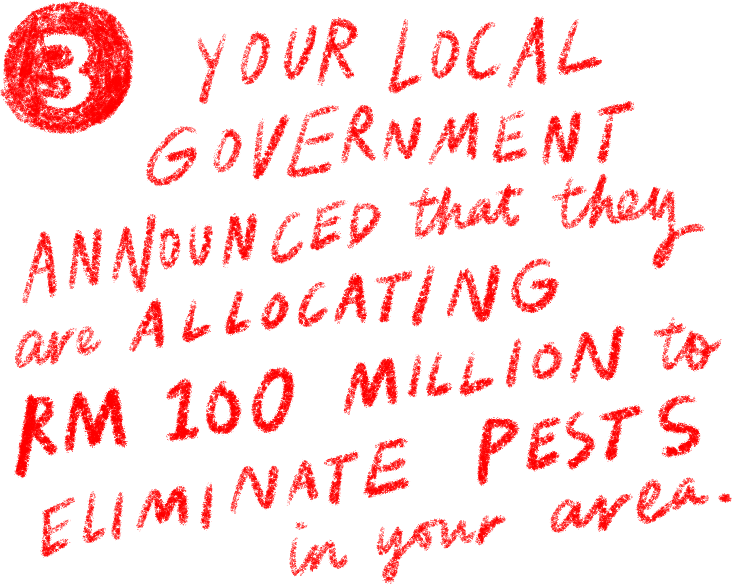 3 YOUR LOCAL
GOVERNMENT
ANNOUNCED that they
are ALLOCATING
RM 100 MILLION to
ELIMINATE PESTS
in your area.